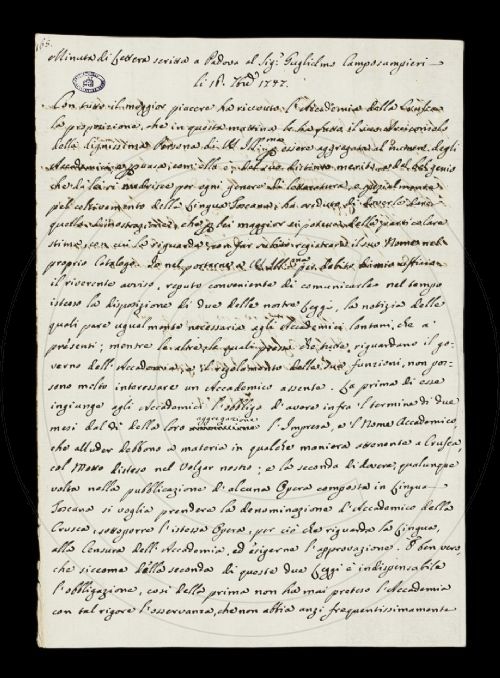 165.
Minuta di Lettera scritta a Padova al Sig.r Guglielmo Camposampieri
li 18. 1747.
Con tutto il maggior piacere ha ricevuto l'Accademia della Crusca
la proposizione, che in questa mattina le ha fatta il suo Arciconsolo
della degnissima Persona di VS. Ill.ma per essere aggregata al numero degli
Accademici; e persuasa com'ella è del suo distinto merito, e del bel genio
che da lei si nudrisce per ogni genere di letteratura, e specialmente
pel coltivamento della Lingua Toscana, ha creduto di doverle dare
quella dimostrazione, che per lei maggior si poteva della particolare
stima, in cui la riguarda, con far subito registrare il suo Nome nel
proprio Catalogo. Io nel portarne a VS. Ill.ma per debito mio ufficio
il riverente avviso, reputo conveniente di comunicarle nel tempo
istesso la disposizione di due delle nostre Leggi, la notizia delle
quali pare ugualmente necessaria agli Accademici lontani, che a'
presenti; mentre le altre, le quali riguardano il go-
verno dell'Accademia, e il regolamento delle sue funzioni, non pos-
sono molto interessare un Accademico assente. La prima di esse
ingiunge agli Accademici l'obbligo d'avere infra 'l termine di due
mesi dal dì della loro aggregazione l'Impresa, e 'l Nome Accademico,
che alluder debbono a materia in qualche maniera attenente a Crusca,
col Motto disteso nel Volgar nostro; e la seconda di dovere, qualunque
volta nella pubblicazione d'alcuna Opera composta in Lingua
Toscana si voglia prendere la denominazione d'Accademico della
Crusca, sottoporre l'istessa Opera, per ciò che riguarda la Lingua,
alla Censura dell'Accademia, ed esigerne l'approvazione. È ben vero,
che siccome della seconda di queste due Leggi è indispensabile
l'obbligazione, così della prima non ha mai preteso l'Accademia
con tal rigore l'osservanza, che non abbia anzi frequentissimamente